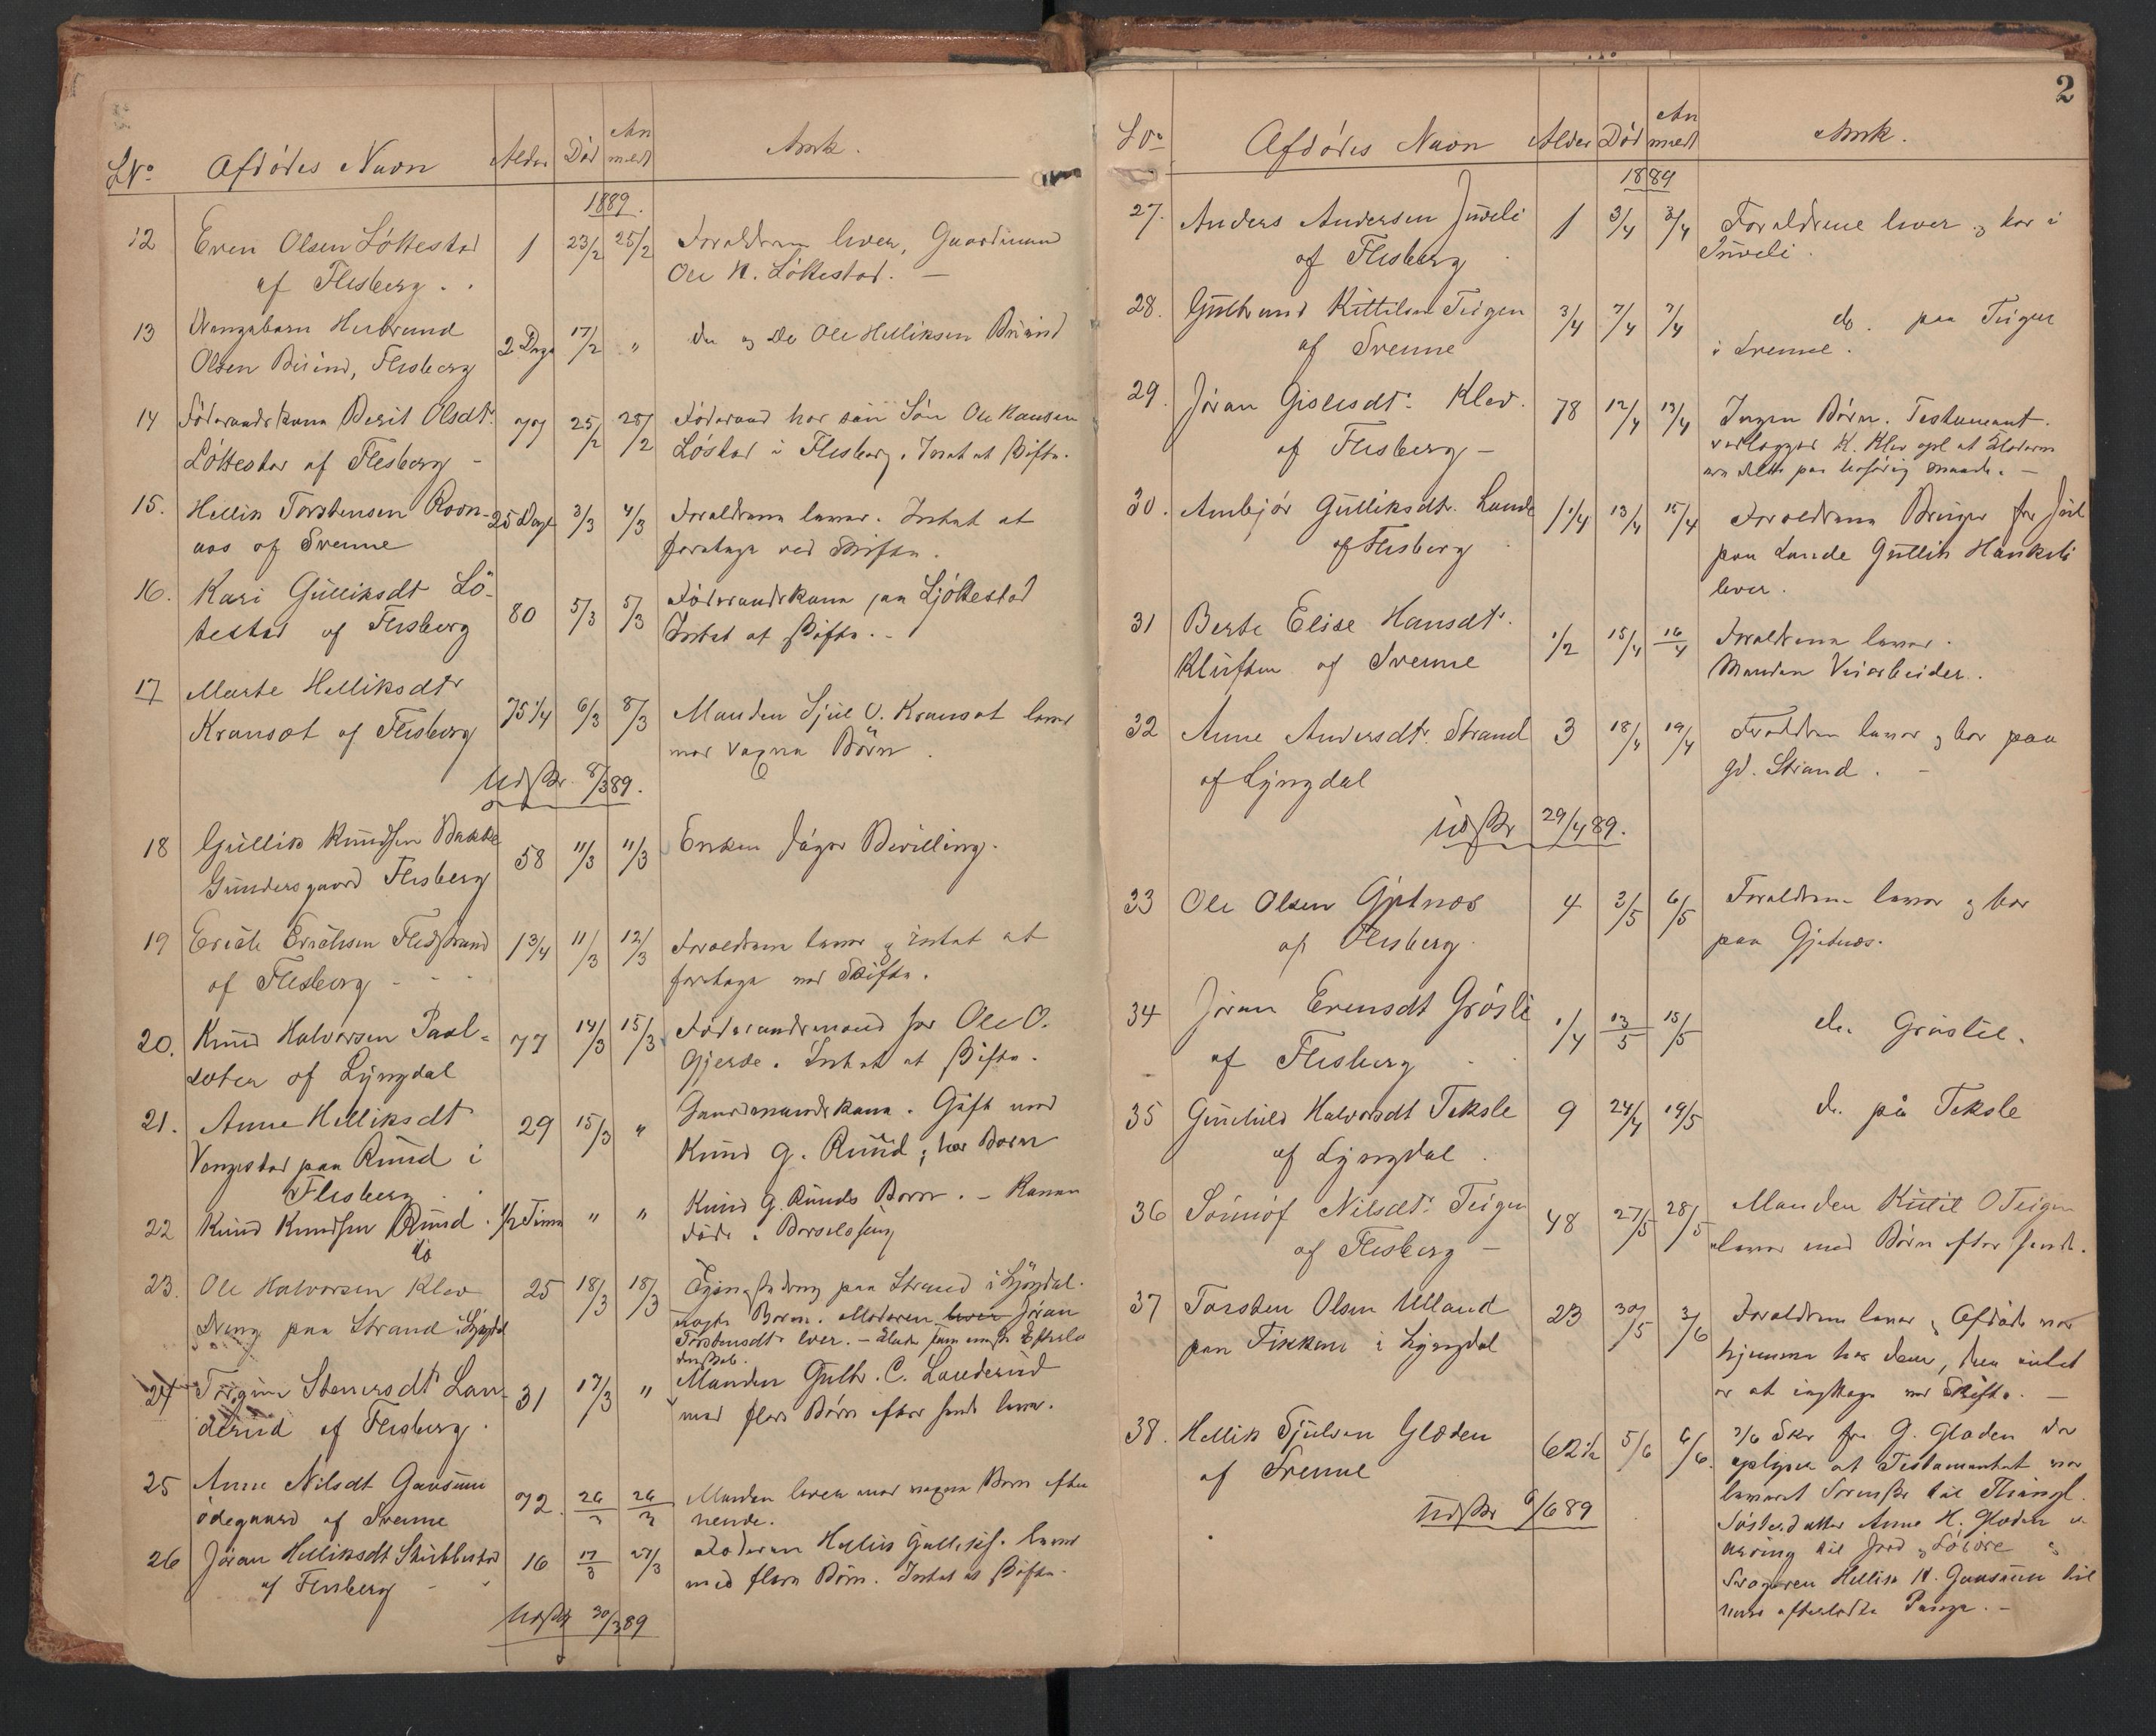 LNo Afdødes Navn Alder Død Anmeldt Anmk.
1889.
12 Even Olsen Løttestad 1 23/2 25/2 Forældrene lever, Gaardmand
af Flesberg. Ole K. Løttestad. —
13 Drengebarn Herbrand 2 Dage 17/2 " do og do Ole Helliksen Briind
Olsen Briind, Flesberg
14 Føderaadskone Berit Olsdtr. 77 25/2 25/2 Føderaad hos sin Søn Ole Hansen
Løttestad af Flesberg - Løstad i Flesberg. Intet at Skifte.
15. Hellik Torstensen Roon- 25 Dage 3/3 4/3 Forældrene lever. Intet at
aas af Svenne foretage ved Skifte.
16. Kari Gulliksdt Lø- 80 5/3 5/3 Føderaadskone paa Ljøttestad
testad af Flesberg Intet at Skifte. -
17 Marte Helliksdtr 75 1/4 6/3 8/3 Manden Sjul O. Kransat lever
Kransat af Flesberg med voxne Børn.
Udskr. 8/3 89.
18 Gullik Knudsen Bakke 58 11/3 11/3 Enken søger Bevilling.
Gundersgaard Flesberg
19 Erich Erichsen 1 3/4 11/3 12/3 Forældrene lever og intet at
af Flesberg - foretage ved Skifte.
20. Knud Halvorsen Paal- 77 14/3 15/3 Føderaadsmand hos Ole O.
søter af Lyngdal Gjerde. Intet at Skifte.
21. Anne Helliksdt 29 15/3 " Gaardmandskone. Gift med
Vangestad paa Ruud i Knud G. Ruud, har Børn
Flesberg
22 Knud Knudsen Ruud. 1/2 Time " " Knud G. Ruuds Barn. - Konen
do døde i Barselseng
23. Ole Halvorsen Klev 25 18/3 18/3 paa Strand i Lyngdal.
Dreng paa Strand i Lyngdal Barn. Moderen lever Jøran
Torstensdtr lever. -
24 Torgun Stenersdtr Lan- 31 17/3 " Manden Gulbr. C. Landerud
derud af Flesberg. med flere Børn efter hende lever.
25 Anne Nilsdt Gaasmu 72. 26/3 26/3 Manden lever med voxne Børn efter
ødegaard af Svenne hende.
26 Jøran Helliksdt 16 17/3 27/3 Faderen Hellik Gulliks. lever
af Flesberg - med flere Børn. Intet at Skifte.
Udskr 30/3 89
2
LNo Afdødes Navn Alder Død Anmeldt Anmk.
1889
27. Anders Andersen Juveli 1 3/4 3/4 Forældrene lever og bor i
af Flesberg Juveli.
28. Gulbrand Kittilsen Teigen 3/4 7/4 7/4 do. paa Teigen
af Svenne i Svenne.
29. Jøran Gislesdtr. Klev. 78 12/4 13/4 Ingen Børn. Testament.
af Flesberg - vedlægges K. Klev opl at
paa lovlig Maade. -
30. Ambjør Gulliksdtr. Lande 1 1/4 13/4 15/4 Forældrene Bruger for Sjul
af Flesberg paa Lande Gullik Haukeli
lever.
31 Berte Elise Hansdtr. 1/2 15/4 16/4 Forældrene lever.
Kluften af Svenne Manden Veiarbeider.
32 Anne Andersdtr. Strand 3 18/4 19/4 Forældrene lever og bor paa
af Lyngdal gd. Strand. -
Udskr 29/4 89.
33 Ole Olsen Gjetnæs 4 3/5 6/5 Forældrene lever og bor
af Flesberg. paa Gjetnæs.
34 Jøran Evensdt Grøsli 1/4 13/5 15/5 do. Grøslie.
af Flesberg
35 Gunhild Halvorsdt Teksle 9 24/4 19/5 do. på Teksle
af Lyngdal.
36 Sønnøf Nilsdtr. Teigen 48 27/5 28/5 Manden Kittil O Teigen
af Flesberg - lever med Børn efter hende.
37 Torsten Olsen Ulland 23 30/5 3/6 Forældrene lever, Afdøde var
paa Fikkan i Lyngdal hjemme hos dem, hvor intet
er at iagttage ved Skifte. -
38. Hellik Sjulsen Gladen 62 1/2 5/6 6/6. 7/6 Skr fra G. Gladen der
af Svenne oplyser at Testamentet var
Udskr 9/6 89 leveret Sorenskr til Thingl.
Søsterdatter Anne H. Gladen er
Arving til Jord og Løsøre og
Svogeren Hellik K. Gaasmu til
hans efterladte Penge. -